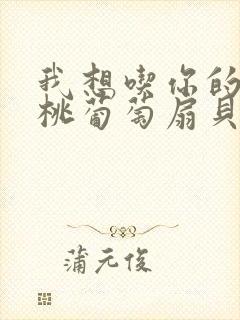 我想喫你的
桃葡萄扇貝
蒲元俊